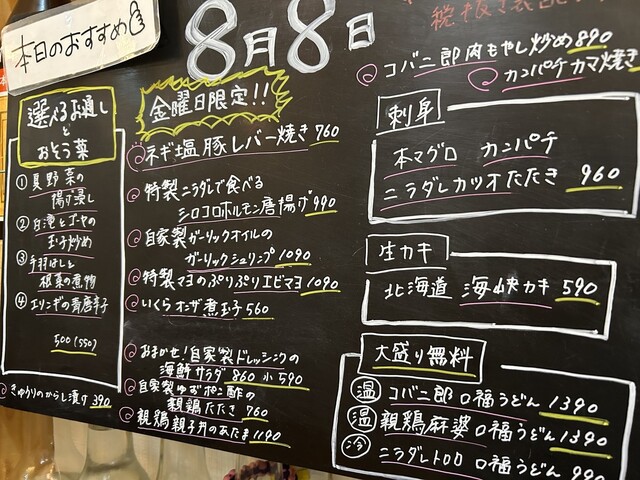 本日のおすすめ
8月8日
選べるお通し
と
おとう菜
①夏野菜の
揚げ浸し
②白滝とゴーヤの
玉子炒め
③手羽はしと
根菜の煮物
④エリンギの青唐辛子
500(550)
きゅうりのからし漬け390
金曜日限定!!
ネギ塩豚レバー焼き760
特製ニラダレで食べる
シロコロホルモン唐揚げ990
自家製ガーリックオイルの
ガーリックシュリンプ1090
特製マヨのぷりぷりエビマヨ1090
いくらオンザ煮玉子560
おまかせ!自家製ドレッシングの
海鮮サラダ860小590
自家製ゆずポン酢の
親鶏たたき760
親鶏親子丼のあたま1190
税抜き表記
コバニ郎肉もやし炒め890
カンパチカマ焼き
刺身
本マグロ カンパチ
ニラダレカツオたたき960
生カキ
北海道 海峡カキ590
大盛り無料
温 コバニ郎口福うどん1390
温 親鶏麻婆口福うどん1390
冷 ニラダレトロロ口福うどん990